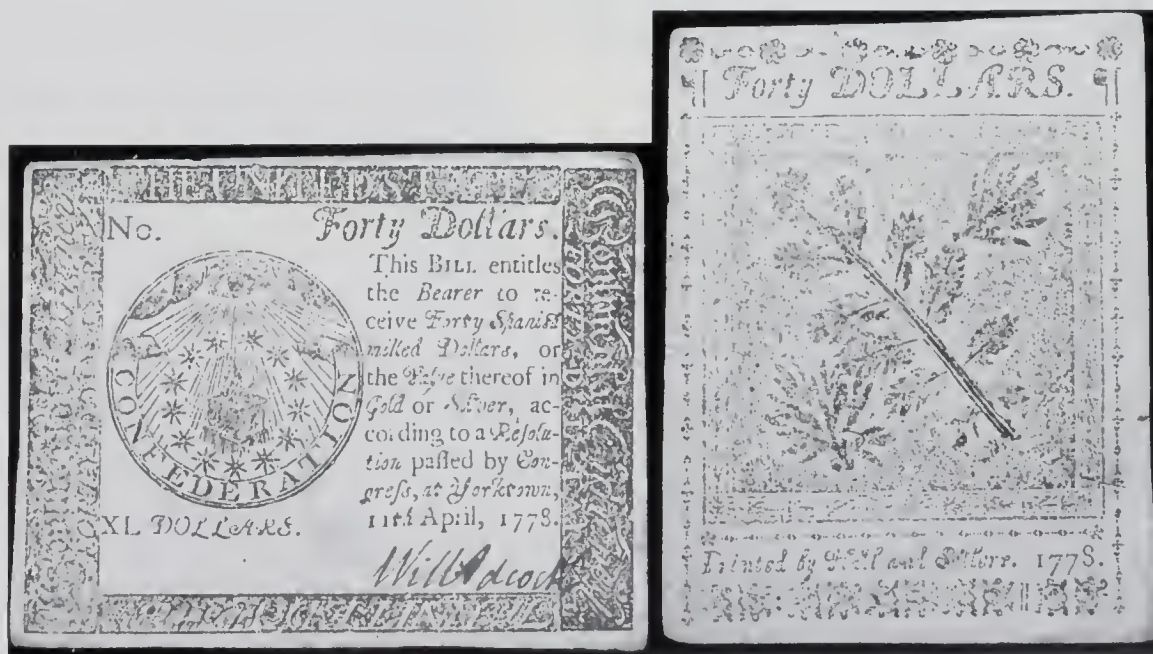 THE UNITED STATES
No. Forty Dollars.
This BILL entitles
the Bearer to re-
ceive Forty Spanish
milled Dollars, or
the Value thereof in
Gold or Silver, ac-
cording to a Resolu-
tion paſſed by Con-
greſs, at Yorktown,
11th April, 1778.
CONFEDERATION
XL DOLLARS.
Will Adcock
Forty DOLLARS.
Printed by Hall and Sellers. 1778.